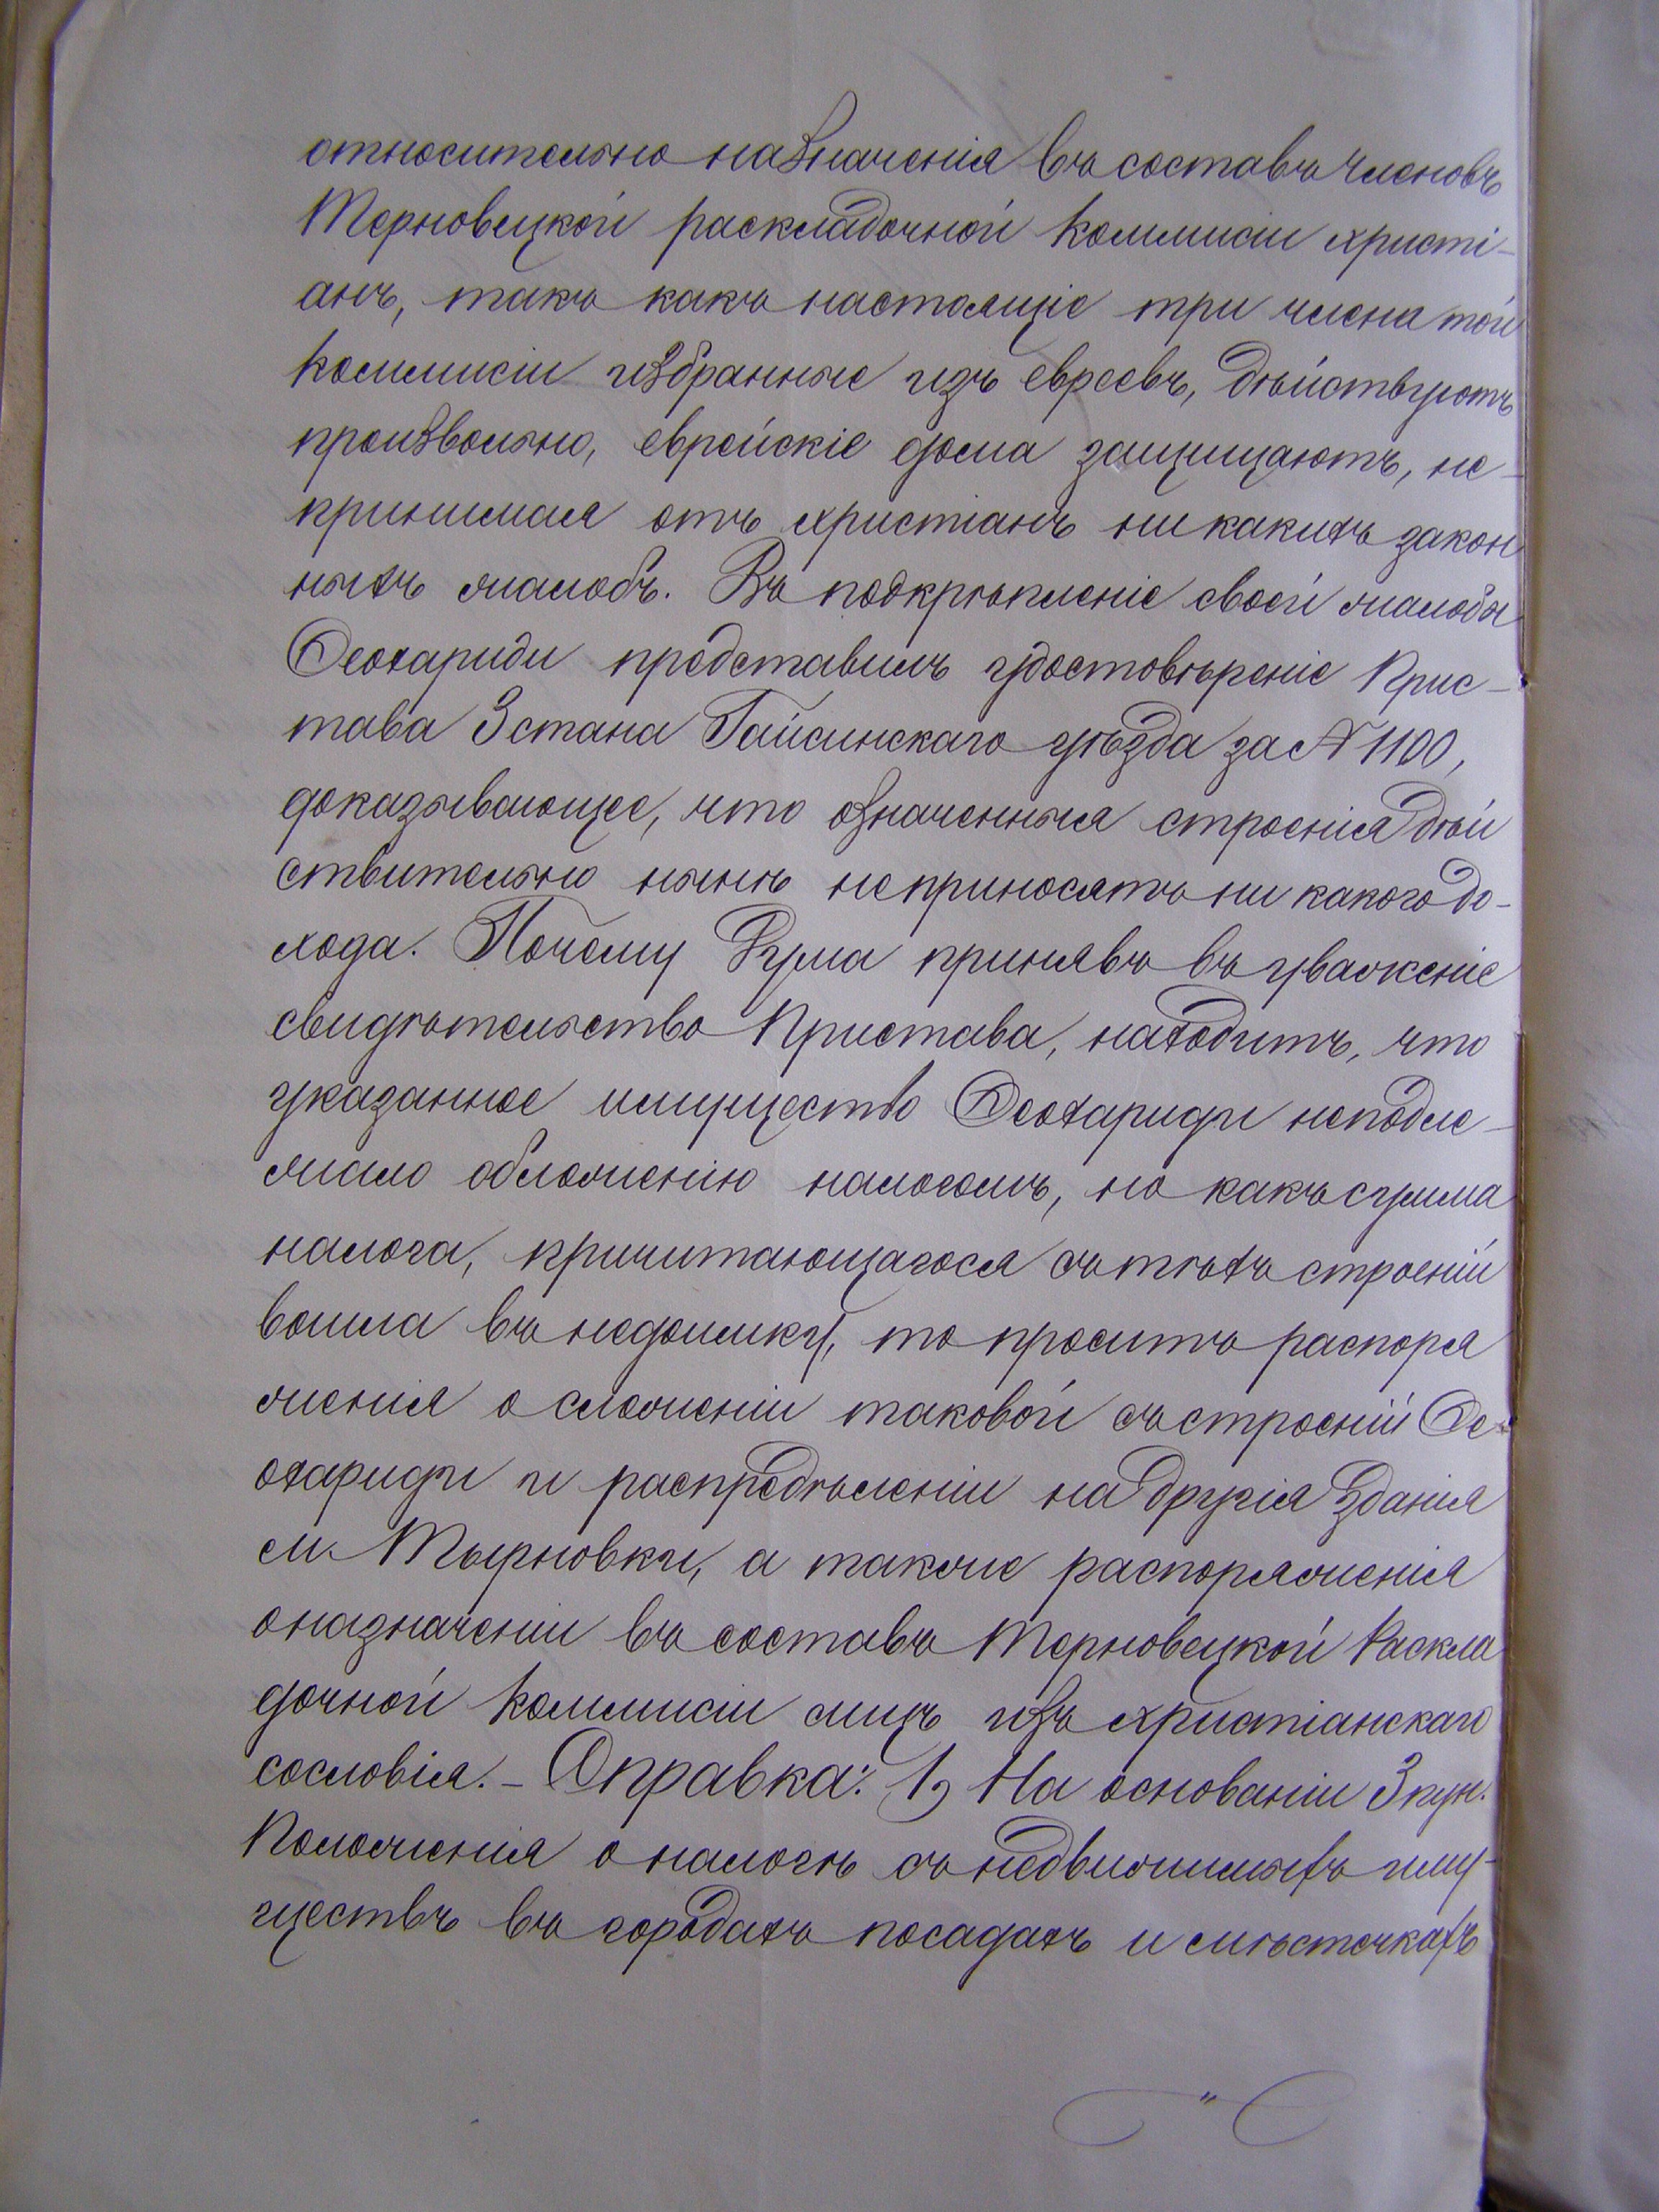 относительно назначенія въ составъ членовъ
Терновецкой раскладочной Коммисіи христі-
анъ, такъ какъ настоящіе три члена той
Коммисіи избранные изъ евреевъ, дѣйствуютъ
произвольно, еврейскіе дома защищаютъ, не-
принимая отъ христіанъ ни какихъ закон
ныхъ жалобъ. Въ подкрѣпленіе своей жалобы
Ѳеохариди представилъ удостовѣреніе Прис-
тава 3 стана Гайсинскаго уѣзда за № 1100,
доказывающее, что означенныя строенія дѣй
ствительно нынѣ не приносятъ ни какого до-
хода. Почему Дума принявъ въ уваженіе
свидѣтельство Пристава, находитъ, что
указанное имущество Ѳеохариди неподле-
жало обложенію налогомъ, но какъ сумма
налога, причитающагося съ тѣхъ строеній
вошла въ недоимку, то проситъ распоря
женія о сложеніи таковой съ строеній Ѳе-
охариди и распредѣленіи на другія зданія
м. Тырновки, а также распоряженія
о назначеніи въ составъ Терновецкой Раскла
дочной Коммисіи лицъ изъ христіанскаго
сословія. – Справка: 1, На основаніи 3 пун.
Положенія о налогѣ съ недвижимыхъ иму-
ществъ въ городахъ посадахъ и мѣстечкахъ